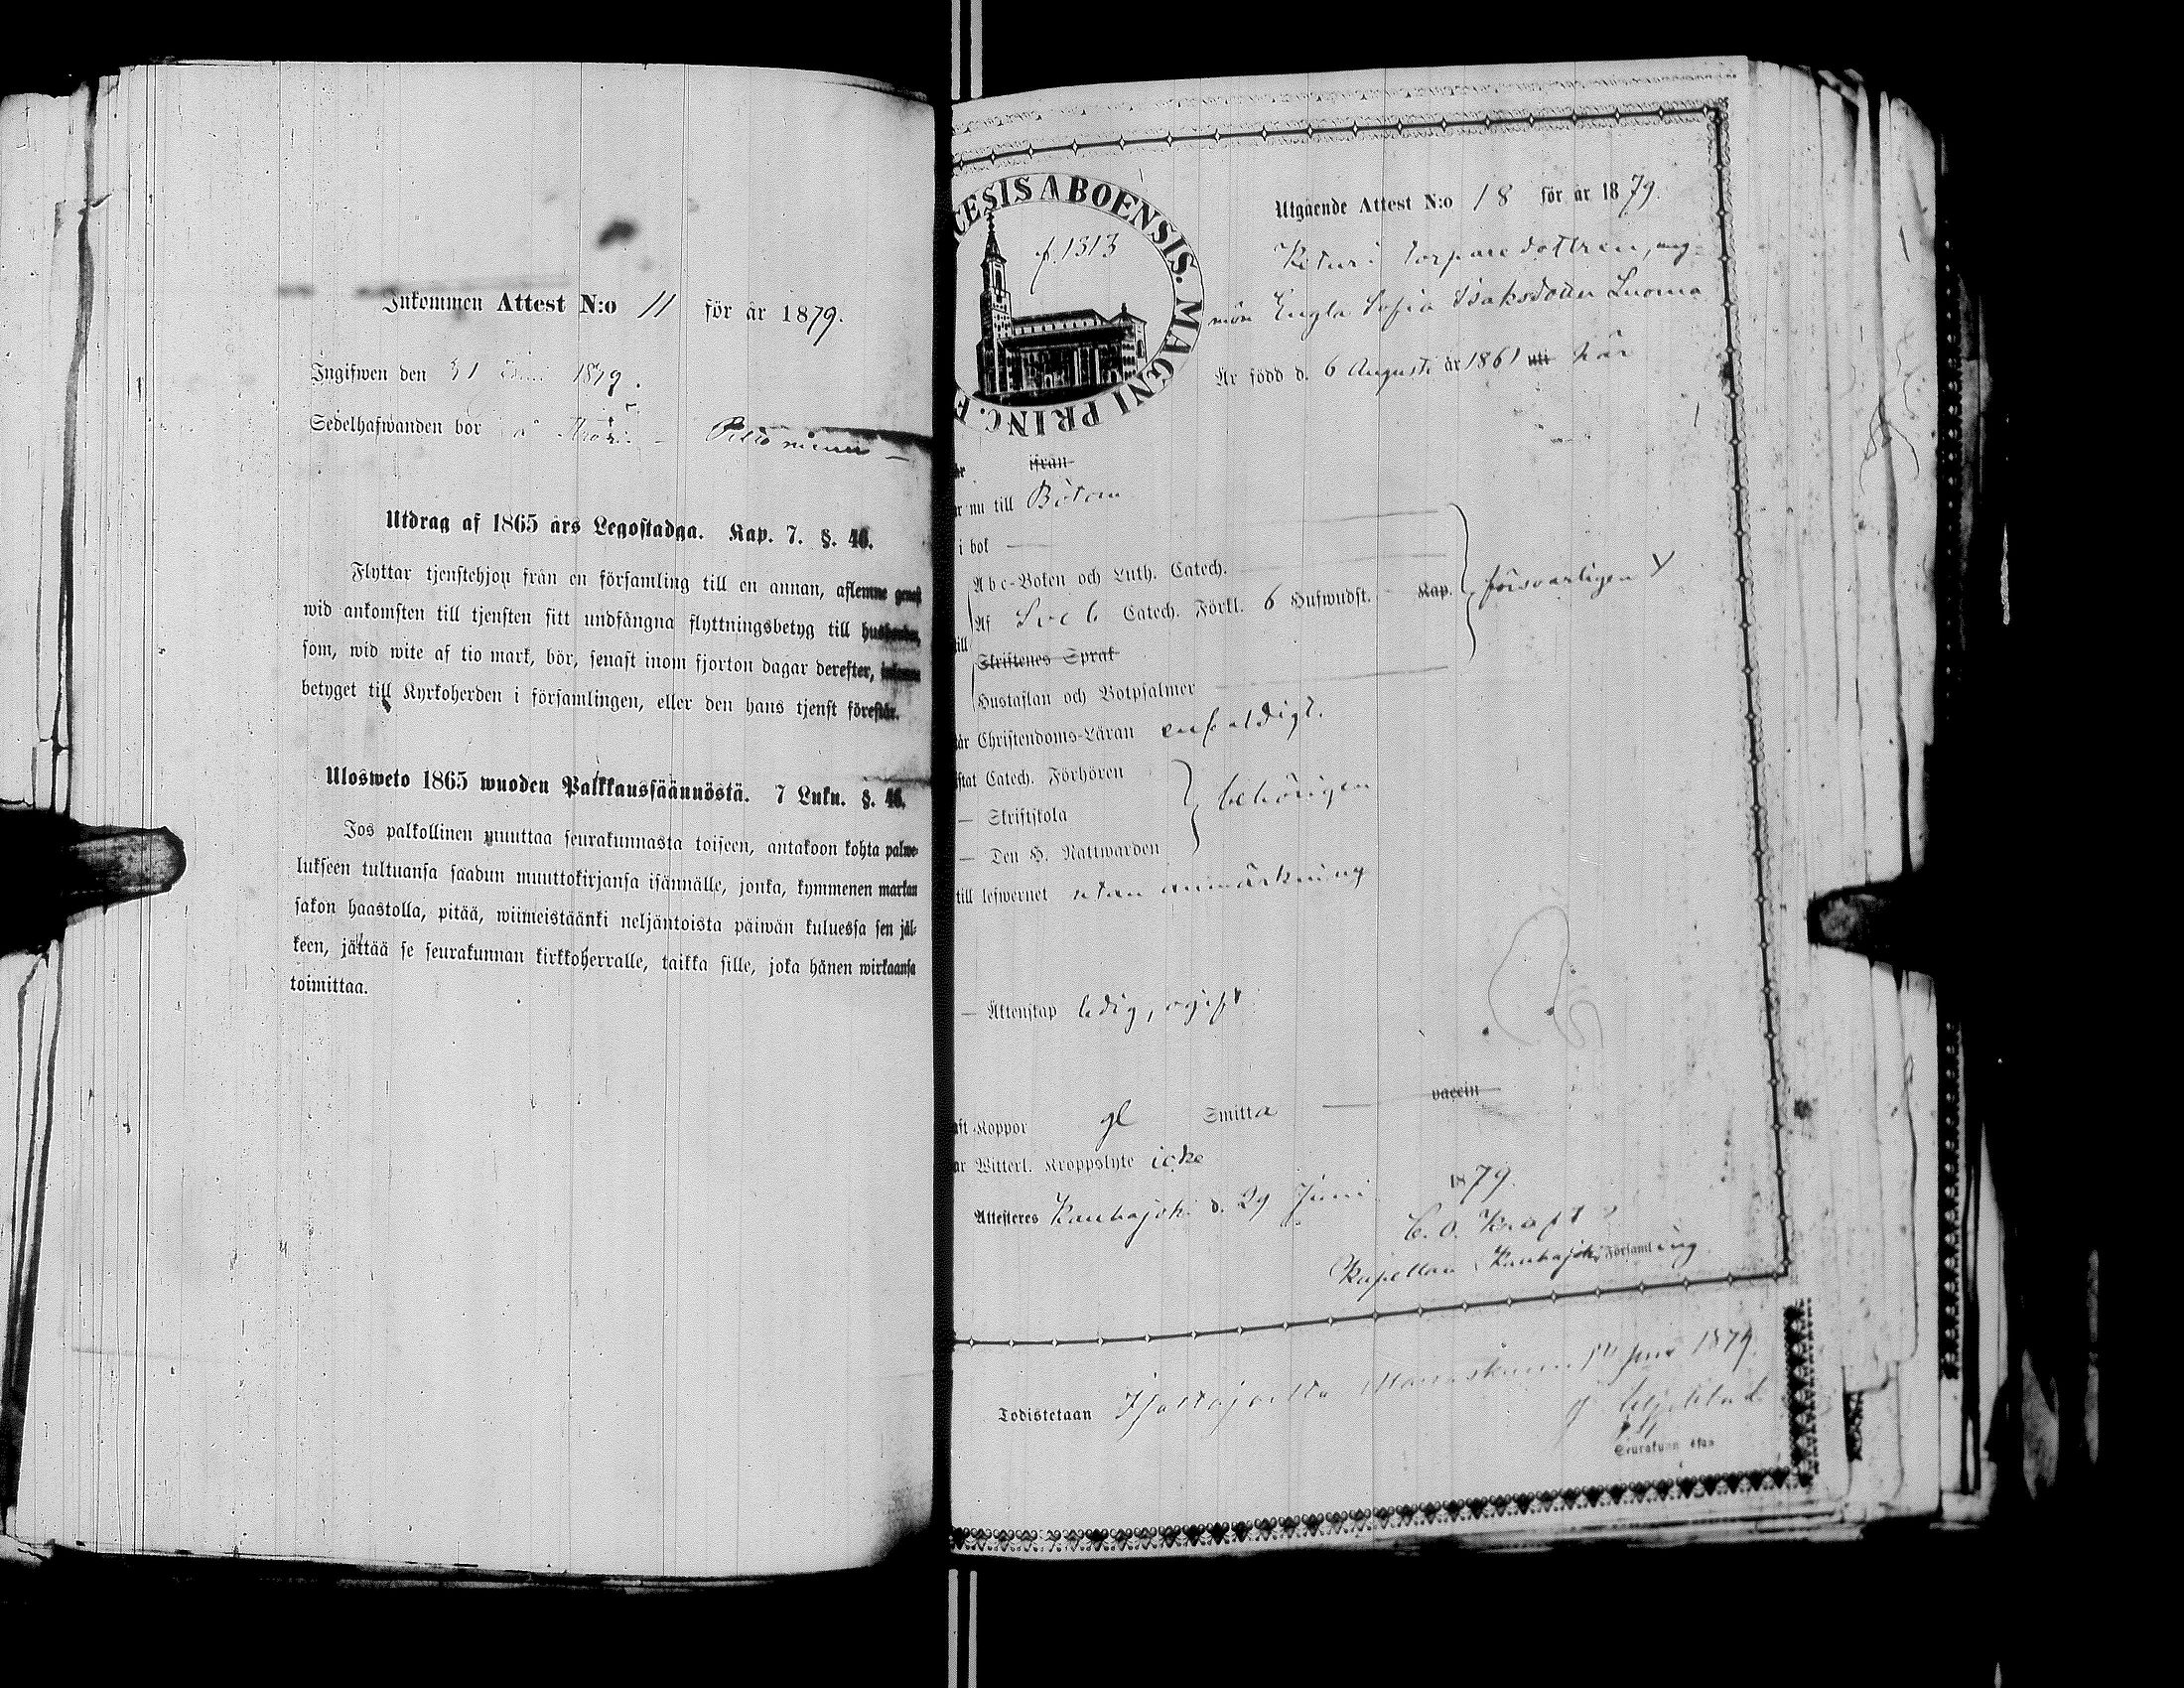 Inkommen Attest N:o 11 för år 1879.
Ingifwen den 31 1879.
Sedelhafwanden bor å
Utdrag af 1865 års Legostadga. Kap. 7. §. 46.
Flyttar tjenstehjon från en församling till en annan, aflemne genast
wid ankomsten till tjensten sitt undfångna flyttningsbetyg till husbonden,
som, wid wite af tio mark, bör, senast inom fjorton dagar derefter,
betyget till Kyrkoherden i församlingen, eller den hans tjenst förestår.
Ulosweto 1865 wuoden Palkkaussäännöstä. 7 Luku. §. 46.
Jos palkollinen muuttaa seurakunnasta toiseen, antakoon kohta palwe-
lukseen tultuansa saadun muuttokirjansa isännälle, jonka, kymmenen markan
sakon haastolla, pitää, wiimeistäänki neljäntoista päiwän kuluessa sen jäl-
keen, jättää se seurakunnan kirkkoherralle, taikka sille, joka hänen wirkaansa
toimittaa.
CESIS ABOENSIS. MAGNI PRINC. F
p. 1313
Utgående Attest N:o 18 för år 1879.
torpare dottren, ung-
mön Engla Sofia Isaksdotter Luoma
Är född d. 6 Augusti år 1861 uti här
ifrån
nu till Bötom
i bok
Abc-Boken och Luth. Catech.
Af Sveb Catech. Förkl. 6 Hufwudst. Kap. försvarligen
till
Skriftenes Språk
Hustaflan och Botpsalmer
Christendoms-Läran enfaldigt.
Catech. Förhören
— Skriftskola behörigen
— Den H. Nattwarden
till lefwernet utan anmärkning
— Äktenskap ledig, ogift
vaccin
Koppor gl Smitta
Witterl. Kroppslyte icke
Attesteres Kauhajoki d. 29 Juni 1879.
C. O. Kraft
Kapellan i Kauhajoki Församling
Todistetaan 1879.
Seurakunn